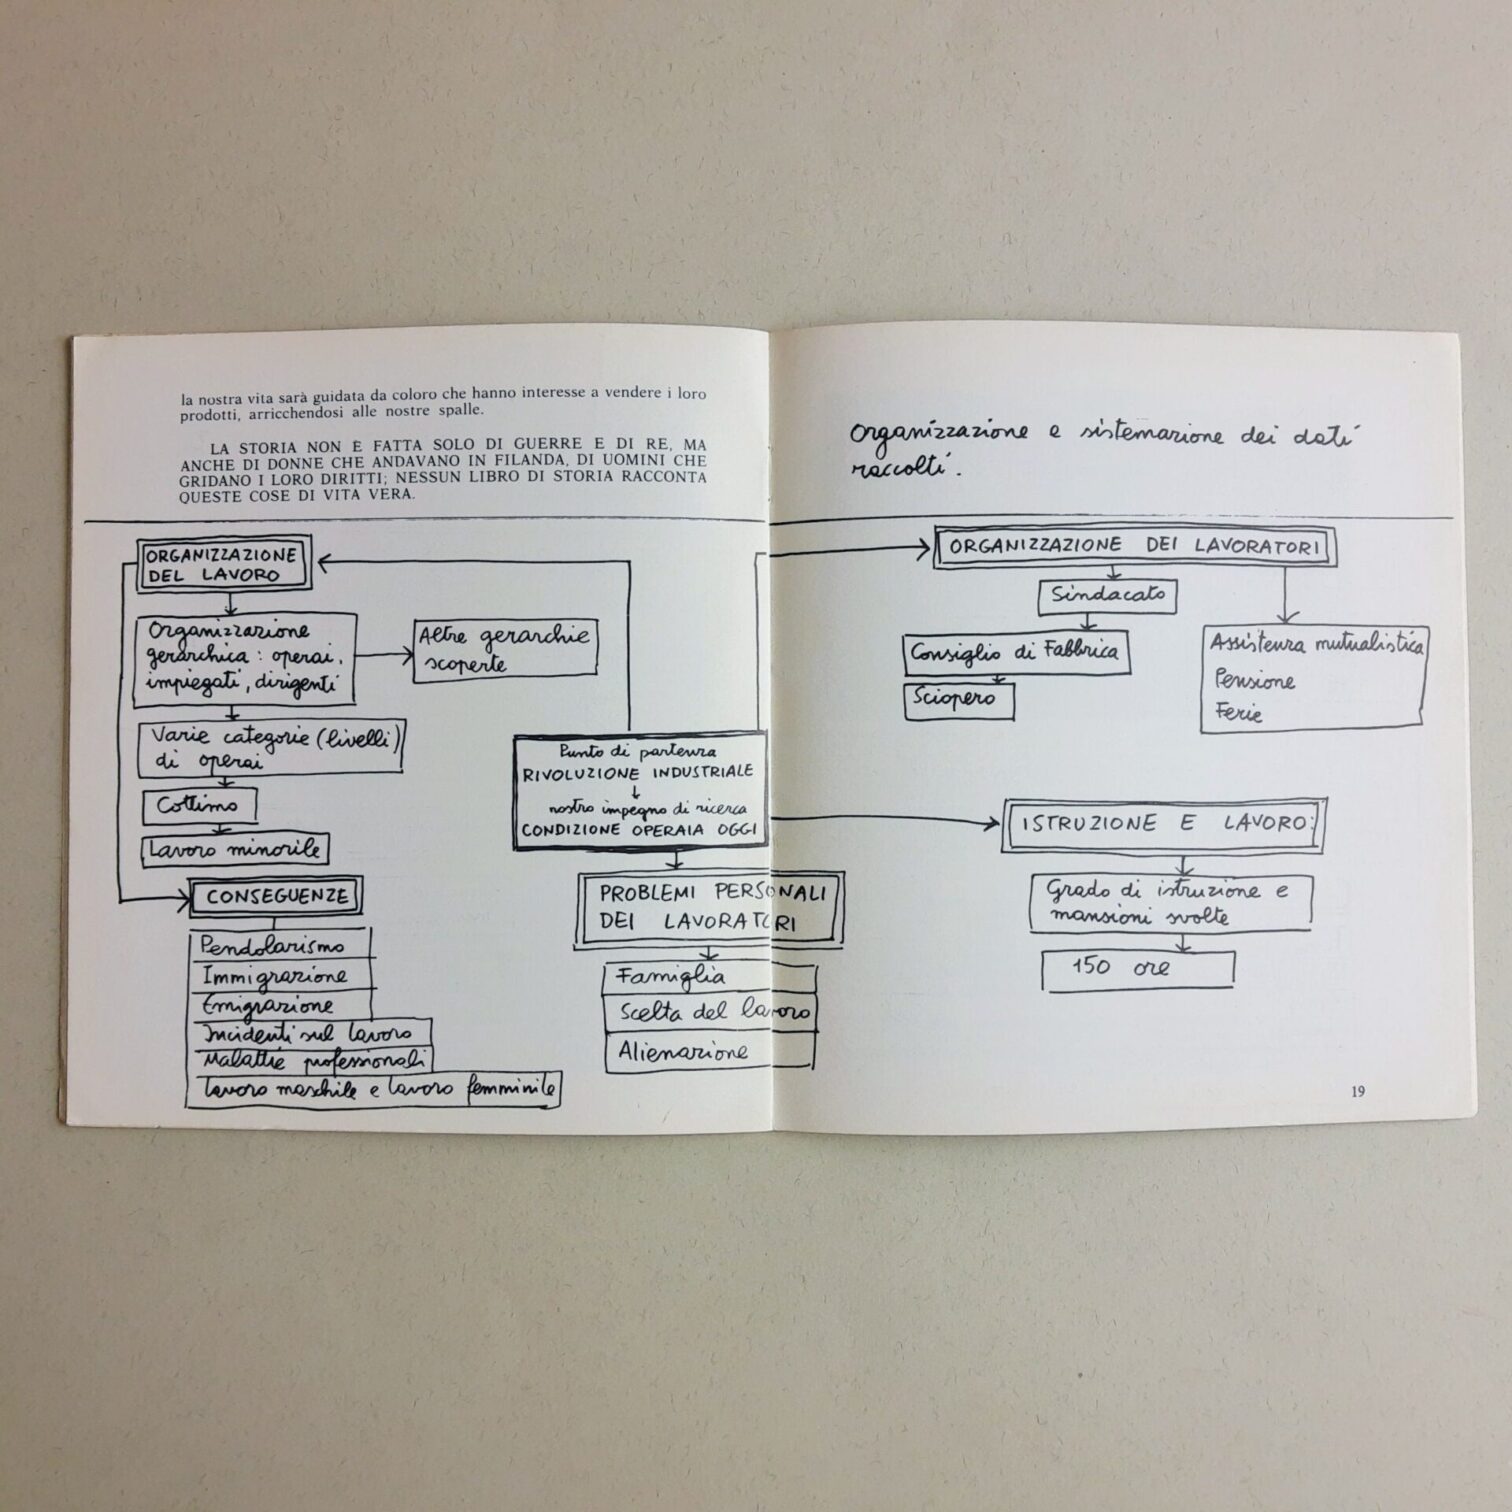 la nostra vita sarà guidata da coloro che hanno interesse a vendere i loro
prodotti, arricchendosi alle nostre spalle.
LA STORIA NON È FATTA SOLO DI GUERRE E DI RE, MA
ANCHE DI DONNE CHE ANDAVANO IN FILANDA, DI UOMINI CHE
GRIDANO I LORO DIRITTI; NESSUN LIBRO DI STORIA RACCONTA
QUESTE COSE DI VITA VERA.
ORGANIZZAZIONE
DEL LAVORO
Organizzazione
gerarchica: operai,
impiegati, dirigenti
Altre gerarchie
scoperte
Varie categorie (livelli)
di operai
Cottimo
Lavoro minorile
CONSEGUENZE
Pendolarismo
Immigrazione
Emigrazione
Incidenti sul lavoro
Malattie professionali
lavoro maschile e lavoro femminile
Punto di partenza
RIVOLUZIONE INDUSTRIALE
↓
nostro impegno di ricerca
CONDIZIONE OPERAIA OGGI
PROBLEMI PERSONALI
DEI LAVORATORI
Famiglia
Scelta del lavoro
Alienazione
Organizzazione e sistemazione dei dati
raccolti.
ORGANIZZAZIONE DEI LAVORATORI
Sindacato
Consiglio di Fabbrica
Sciopero
Assistenza mutualistica
Pensione
Ferie
ISTRUZIONE E LAVORO:
Grado di istruzione e
mansioni svolte
150 ore
19